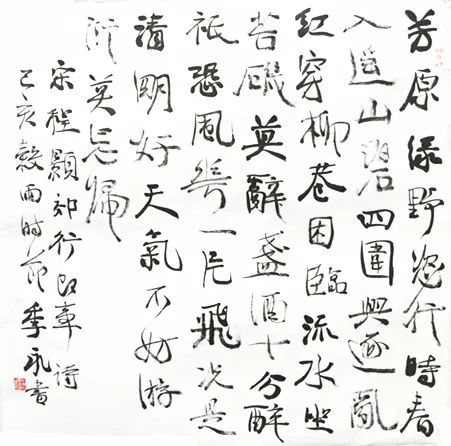 芳原綠野恣行時春
入遥山碧四圍興逐亂
紅穿柳巷困臨流水坐
苔磯莫辭盞酒十分醉
祇恐風華一片飛况是
清明好天氣不妨游
衍莫忘歸
宋程顥郊行即事詩
己亥穀雨時節季永書